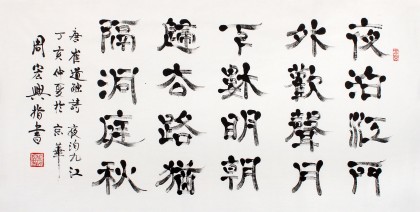 夜泊江門
外歡聲月
下樓明朝
歸去路猶
隔洞庭秋
唐崔道融詩 夜泊九江
丁亥仲夏於京華
周宏興指書